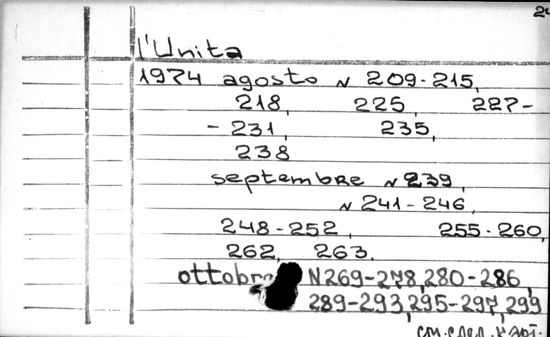 24
l'Unita
1974 agosto N 209-215,
218, 225, 227-
- 231, 235,
238
septembre N 239,
N 241-246,
248-252, 255-260,
262, 263.
ottobre N269-278, 280-286,
289-293, 295-297, 299
см. след. карт.